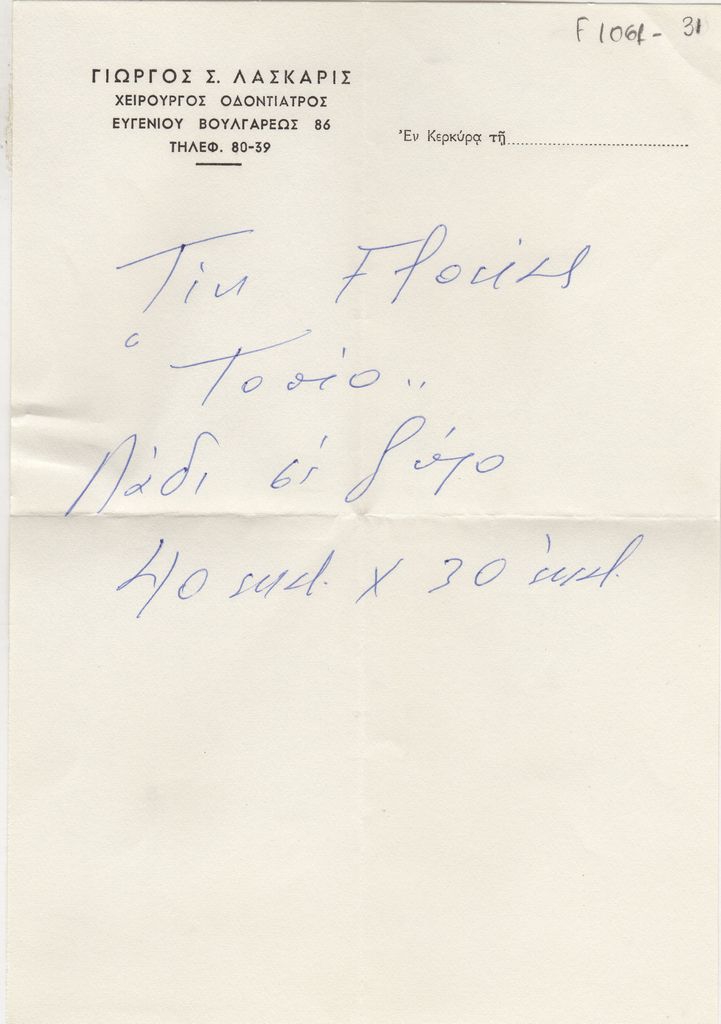 F 1061 - 31
ΓΙΩΡΓΟΣ Σ. ΛΑΣΚΑΡΙΣ
ΧΕΙΡΟΥΡΓΟΣ ΟΔΟΝΤΙΑΤΡΟΣ
ΕΥΓΕΝΙΟΥ ΒΟΥΛΓΑΡΕΩΣ 86
ΤΗΛΕΦ. 80-39
Ἐν Κερκύρᾳ τῇ
Τοπίο
Λάδι σέ ξύλο
40 εκατ. Χ 30 εκατ.